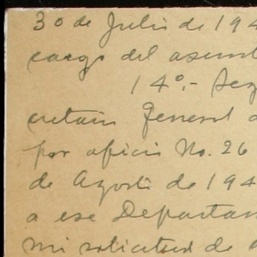 30 de Julio de 194
cargo del asunt
14º.- Seg
cretario General d
por oficio No. 26
de Agosto de 194
a ese Departam
mi solicitud de